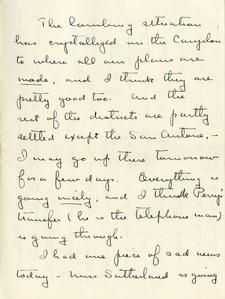 The lambing situation
has crystallized on the Canjelon
to where all our plans are
made, and I think they are
pretty good too. And the
rest of the districts are partly
settled except the San Antone, -
I may go up there tomorrow
for a few days. Everything is
going nicely, and I think Perry's
transfer (he is the telephone man)
is going through.
I had one piece of sad news
today - Miss Sutherland is going